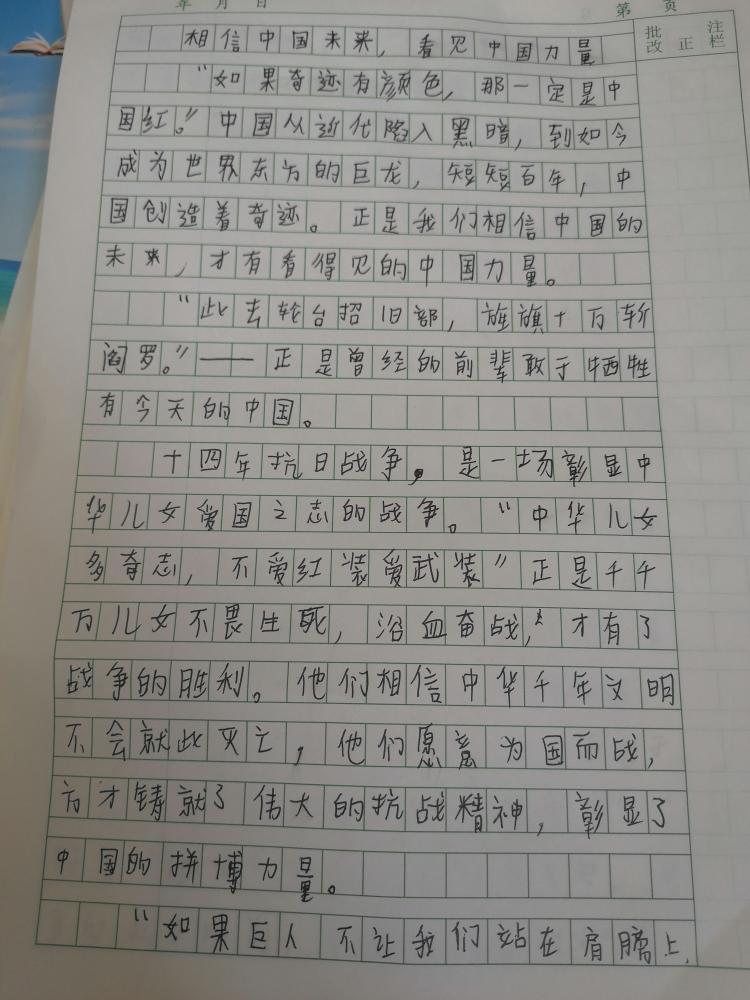 年 月 日 第 页
批改 正 注栏
相信中国未来，看见中国力量
“如果奇迹有颜色，那一定是中
国红。”中国从近代陷入黑暗，到如今
成为世界东方的巨龙，短短百年，中
国创造着奇迹。正是我们相信中国的
未来，才有看得见的中国力量。
“此去轮台招旧部，旌旗十万斩
阎罗。”——正是曾经的前辈敢于牺牲
有今天的中国。
十四年抗日战争，是一场彰显中
华儿女爱国之志的战争。“中华儿女
多奇志，不爱红装爱武装”正是千千
万儿女不畏生死，浴血奋战，才有了
战争的胜利。他们相信中华千年文明
不会就此灭亡，他们愿意为国而战，
方才铸就了伟大的抗战精神，彰显了
中国的拼博力量。
“如果巨人不让我们站在肩膀上，